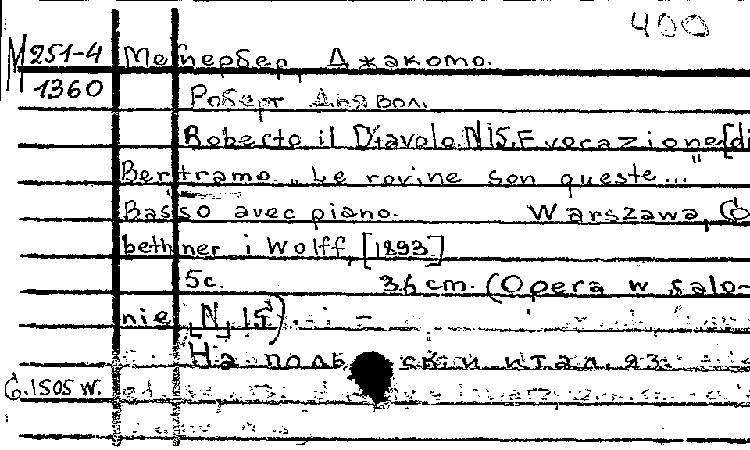 400
М 251-4 Мейербер, Джакомо.
1360 Роберт Дьявол.
Roberto il Diavolo. N 15. Evocazione [di
Bertramo. „Le rovine son queste..."
Basso avec piano. Warszawa, Ge-
bethner i Wolff, [1893]
5c. 36 cm. (Opera w salo-
nie N, 15).
На польск. и итал. яз.
G. 1505 W.